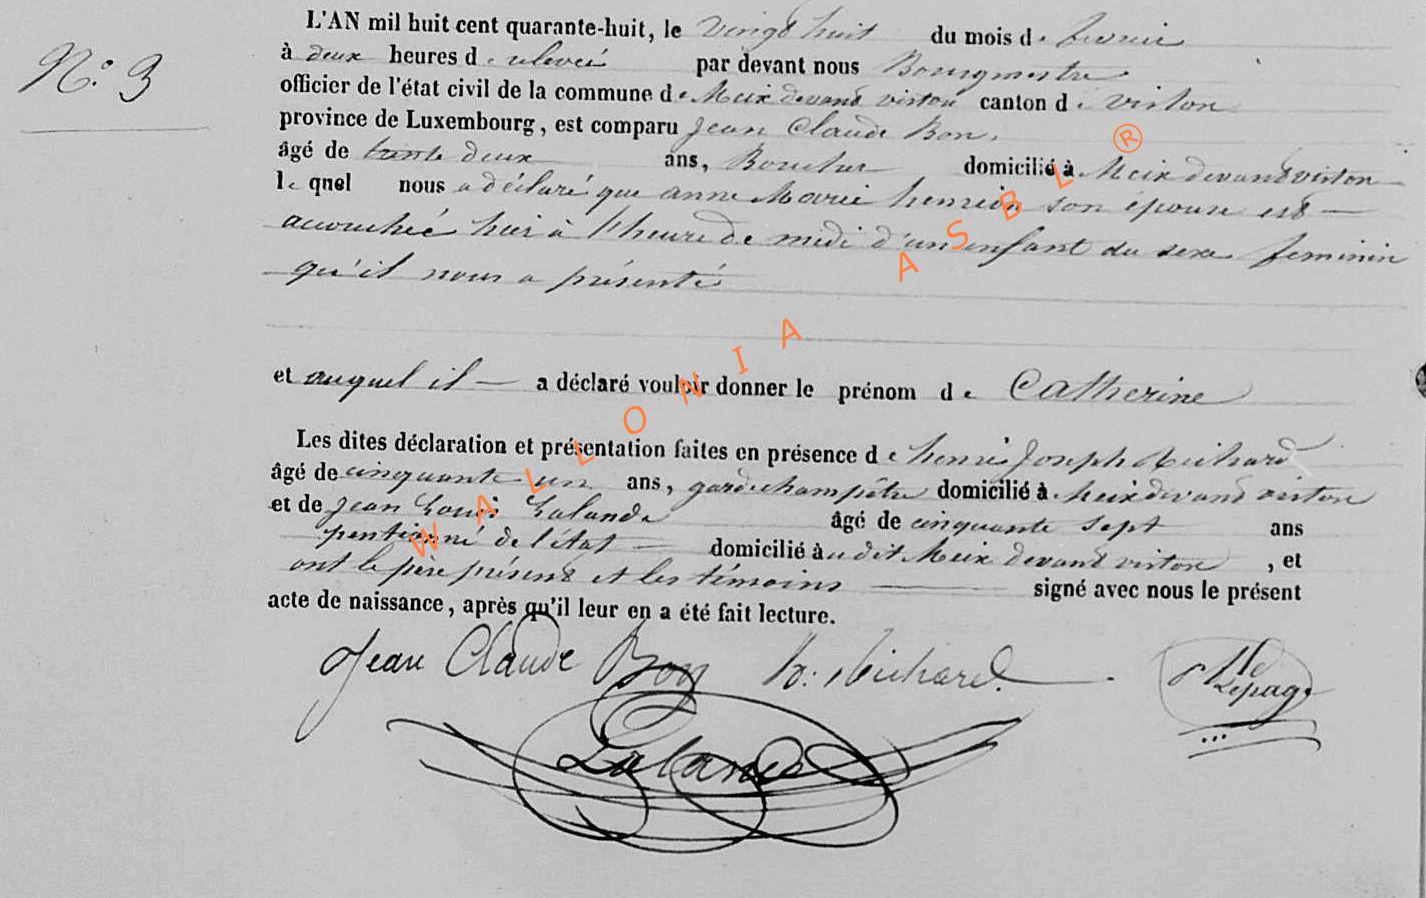 N.° 3
L'AN mil huit cent quarante-huit, le vingt huit du mois de fevrier
à deux heures de relevée par devant nous Bourgmestre
officier de l'état civil de la commune de Meix devant virton canton de virton
province de Luxembourg, est comparu Jean Claude Bon,
âgé de trente deux ans, domicilié à Meix devant virton
le quel nous a déclaré que anne Marie henrion son épouse est
accouchée hier à l'heure de midi d'un enfant du sexe feminin
qu'il nous a présenté
et auquel il a déclaré vouloir donner le prénom de Catherine
Les dites déclaration et présentation faites en présence de henri Joseph Richard
âgé de cinquante un ans, garde champêtre domicilié à Meix devant virton
et de Jean Louis Lalande âgé de cinquante sept ans
pentionné de l'état domicilié au dit Meix devant virton, et
ont le père présent et les témoins signé avec nous le présent
acte de naissance, après qu'il leur en a été fait lecture.
Jean Claude Bon h: Richard Lepage
Lalande
WALLONIA ASBL ®